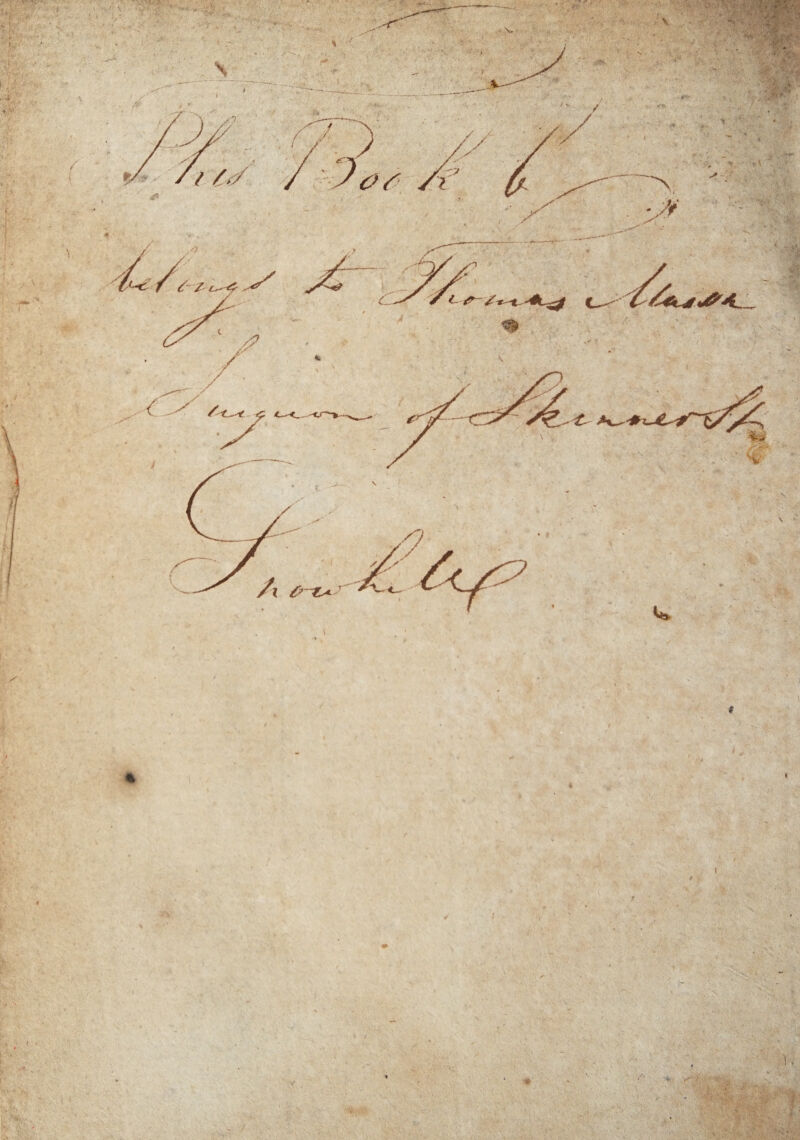 This Book b
belongs to Thomas
Surgeon of Skinner St
Snowhill